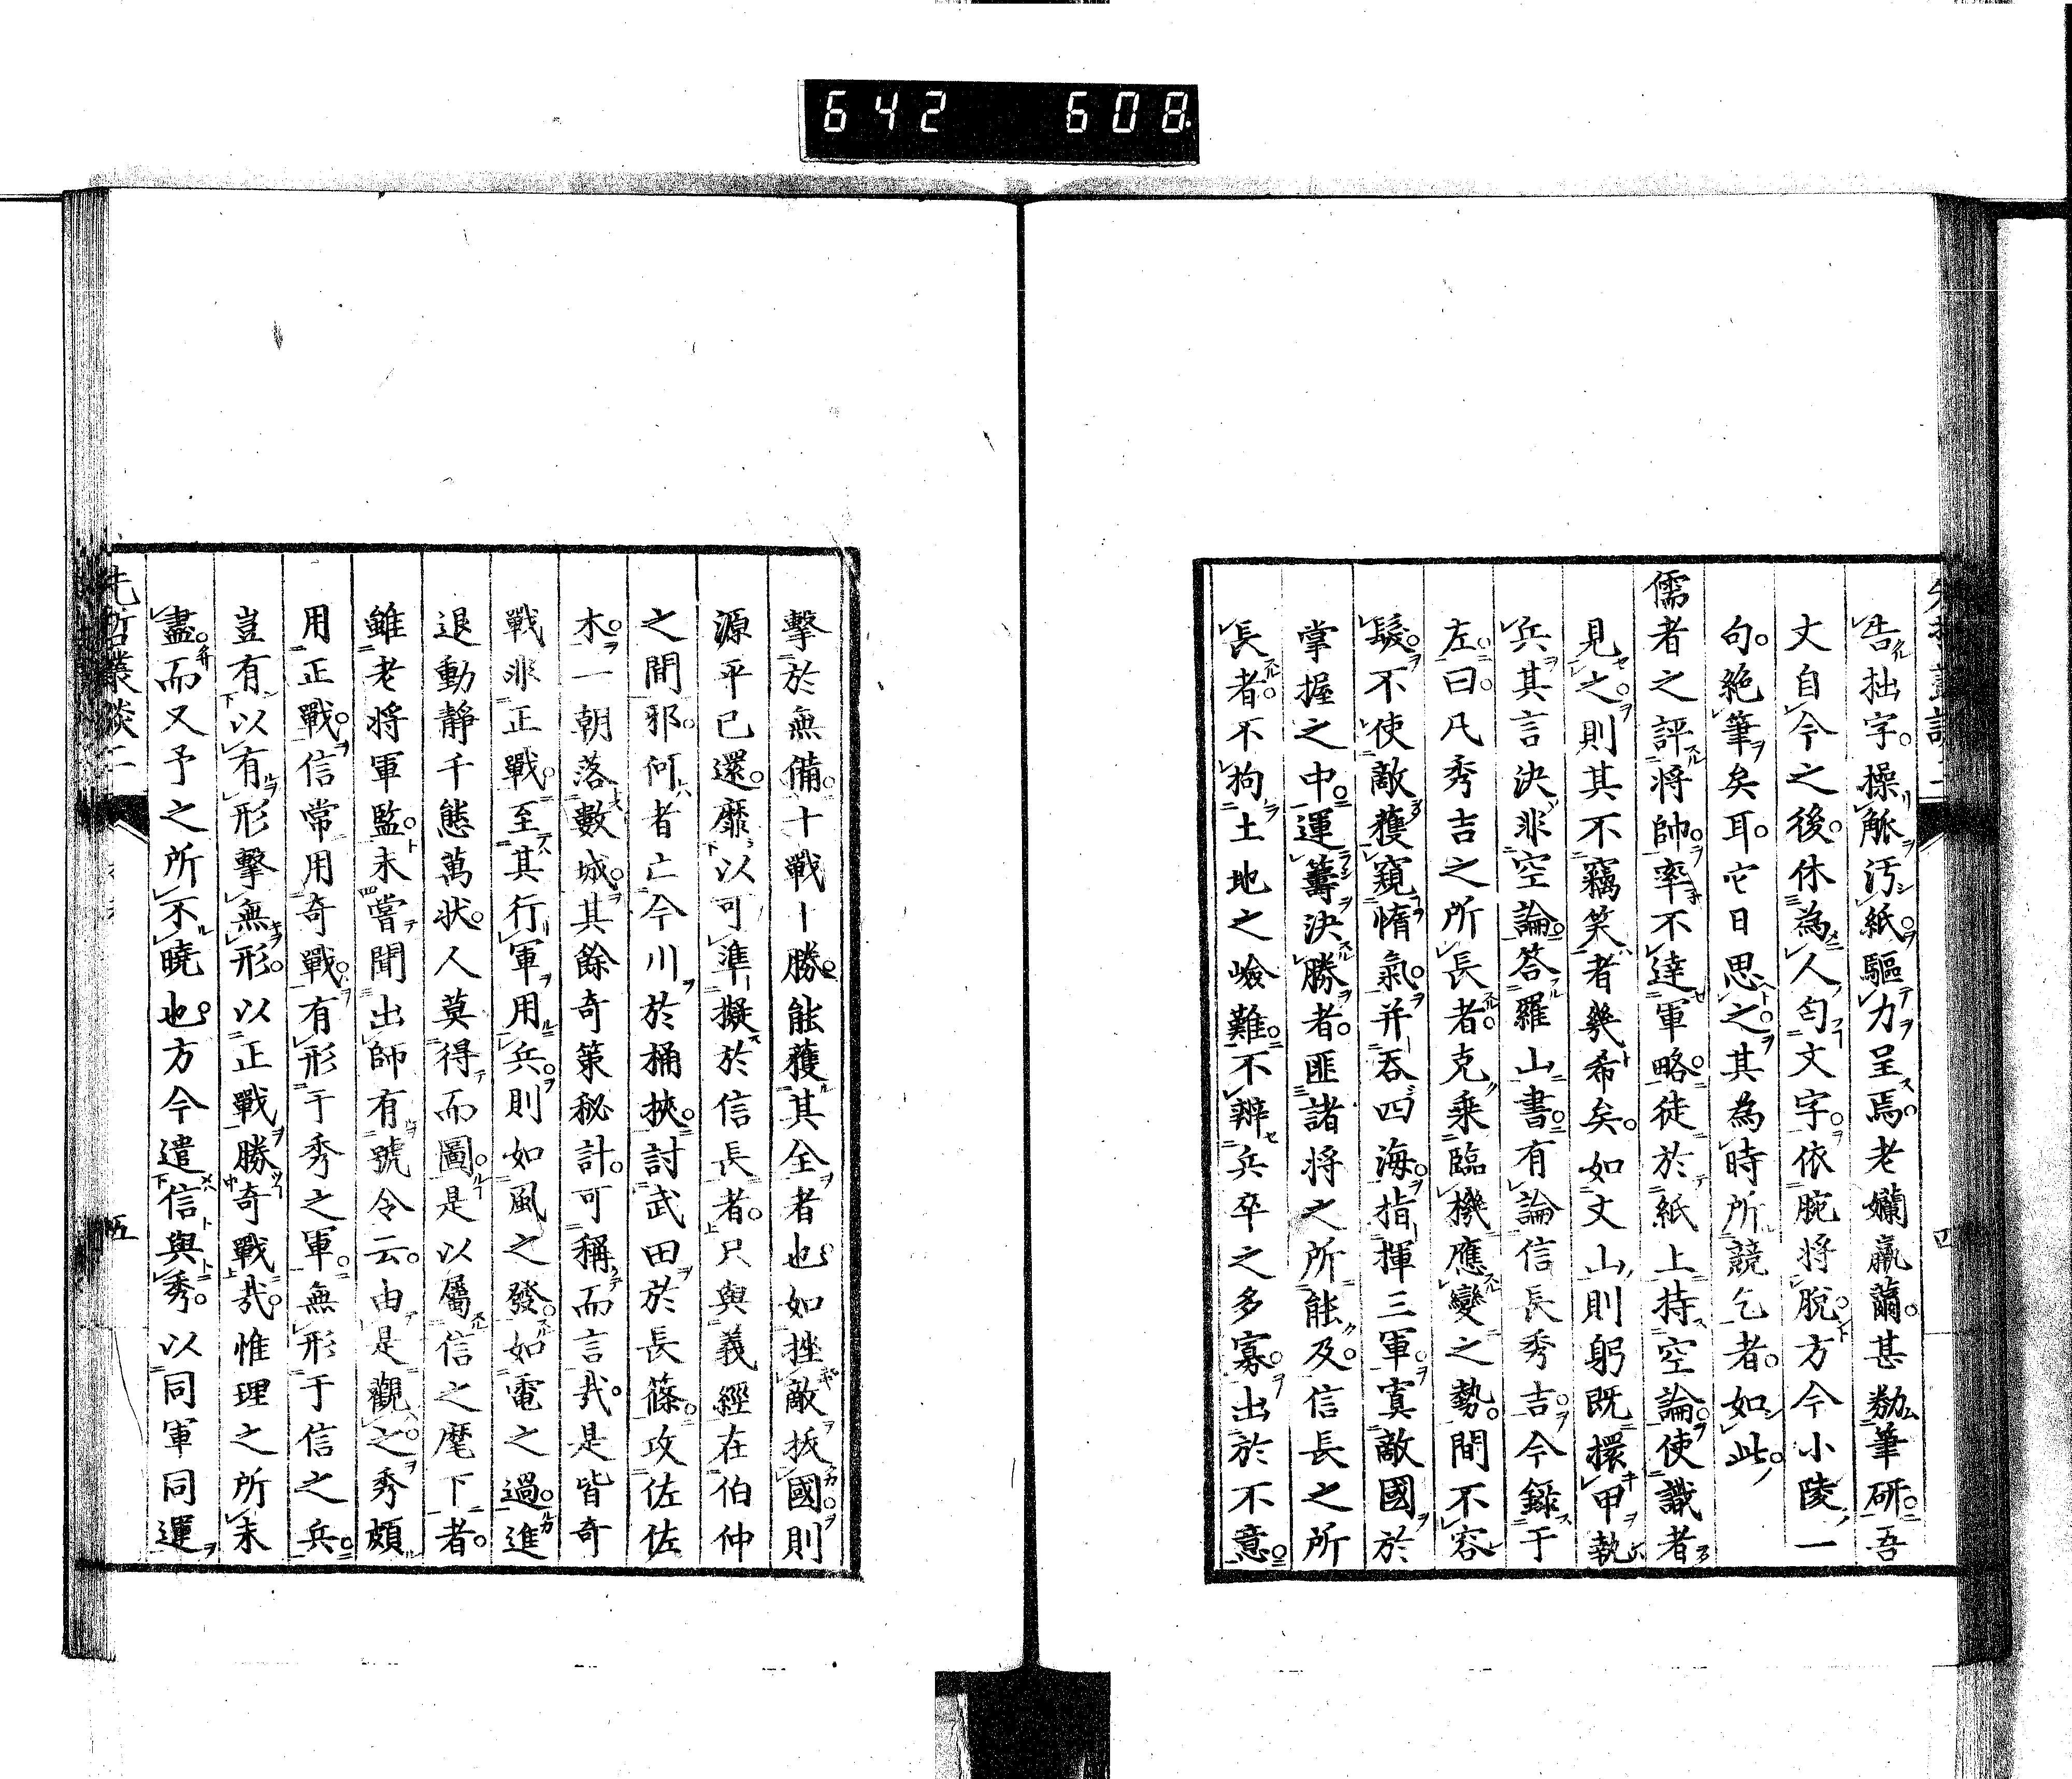 642 608
告拙字操觚汚紙驅力呈焉老嬾羸薾甚勌筆研吾
丈自今之後休為人匄文字依腕將脫方今小陵一
句絶筆矣耳它日思之其為時所競乞者如此
儒者之評將帥率不達軍略徒於紙上持空論使識者
見之則其不竊笑者幾希矣如丈山則躬既擐甲執
兵其言決非空論答羅山書有論信長秀吉今錄于
左曰凡秀吉之所長者克乘臨機應變之勢間不容
髮不使敵獲窺惰氣并吞四海指揮三軍寘敵國於
掌握之中運籌決勝者匪諸將之所能及信長之所
長者不拘土地之嶮難不辨兵卒之多寡出於不意
擊於無備十戰十勝能獲其全者也如挫敵扼國則
源平已還靡以可準擬於信長者只與義經在伯仲
之間邪何者亡今川於桶挾討武田於長篠攻佐佐
木一朝落數城其餘奇策秘計可稱而言哉是皆奇
戰非正戰至其行軍用兵則如風之發如電之過進
退動靜千態萬狀人莫得而圖是以屬信之麾下者
雖老將軍監未嘗聞出師有號令云由是觀之秀頗
用正戰信常用奇戰有形于秀之軍無形于信之兵
豈有以有形擊無形以正戰勝奇戰哉惟理之所未
盡而又予之所不曉也方今遣信與秀以同軍同運
先哲叢談二
五